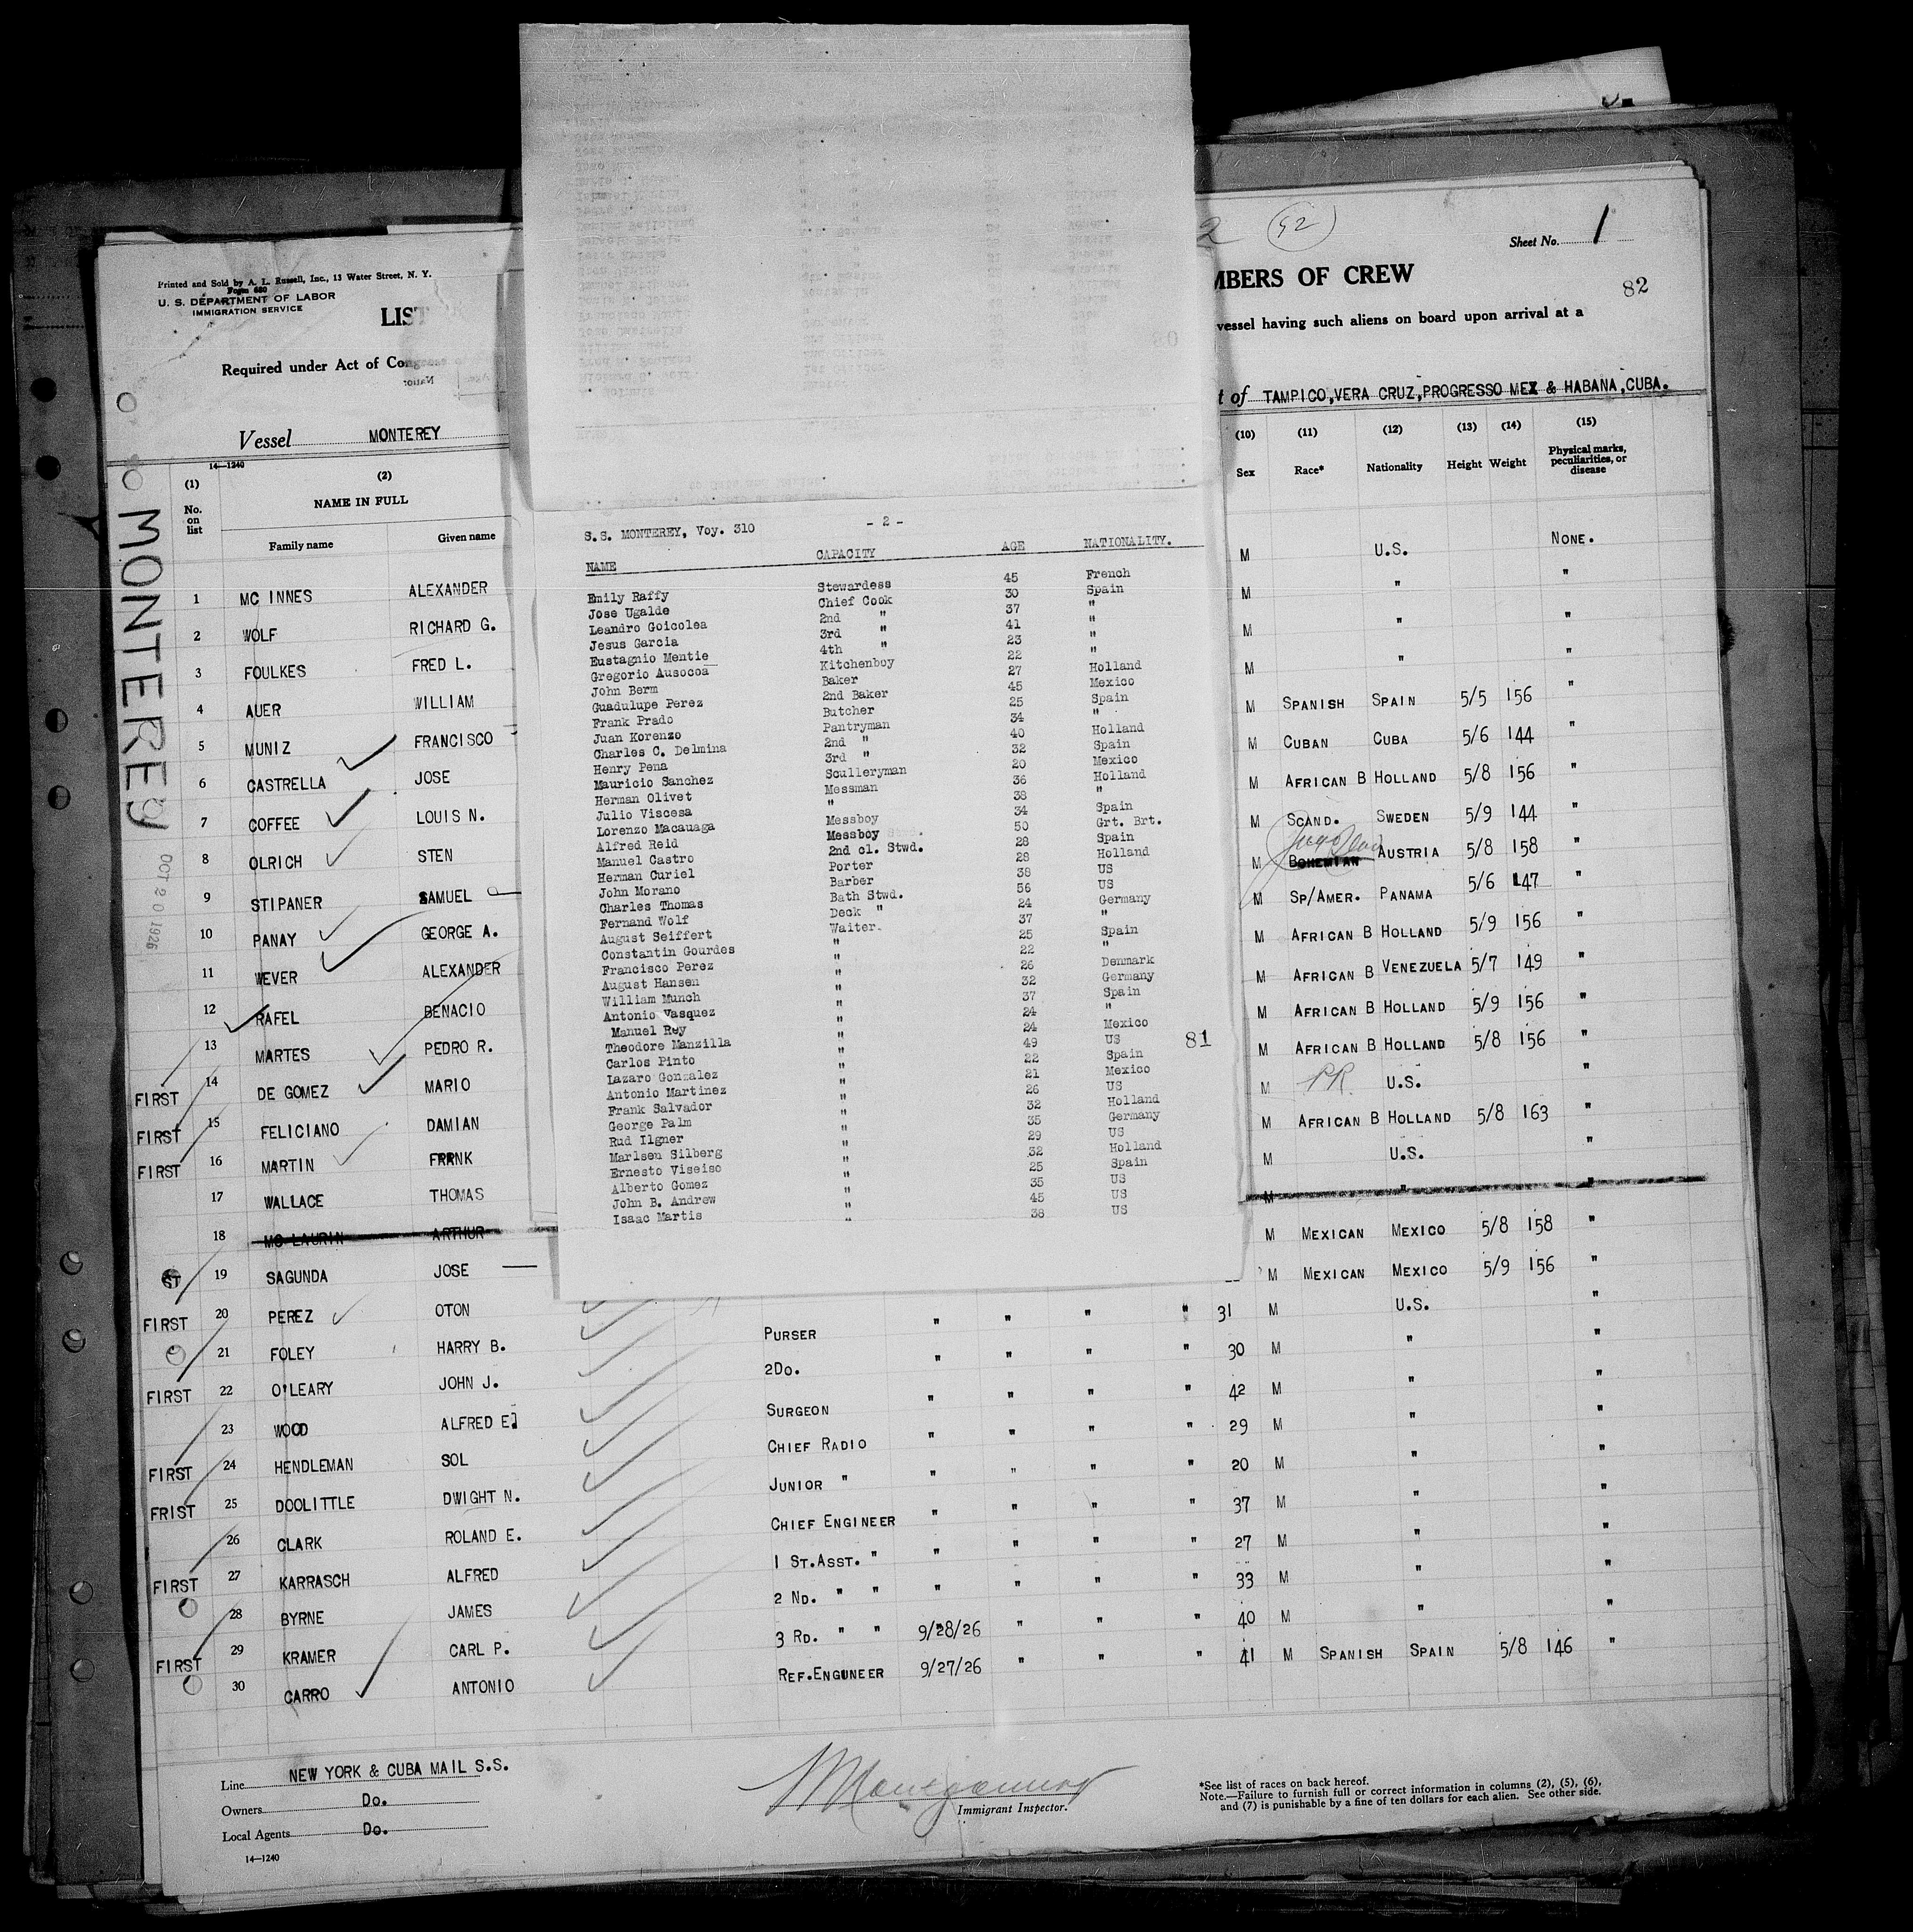 Sheet No. 1
2 (52)
82
Printed and Sold by A. L. Russell, Inc., 13 Water Street, N. Y.
Form 680
U. S. DEPARTMENT OF LABOR
IMMIGRATION SERVICE
LIST
MBERS OF CREW
Required under Act of Congress
vessel having such aliens on board upon arrival at a
Vessel MONTEREY
t of TAMPICO, VERA CRUZ, PROGRESSO MEX & HABANA, CUBA.
14—1240
(1) (2) (10) (11) (12) (13) (14) (15)
No. on list NAME IN FULL Family name Given name Sex Race* Nationality Height Weight Physical marks, peculiarities, or disease
MONTEREY
OCT 20 1926
1 MC INNES ALEXANDER M U.S. NONE.
2 WOLF RICHARD G. M " "
3 FOULKES FRED L. M " "
4 AUER WILLIAM M " "
5 MUNIZ FRANCISCO M SPANISH SPAIN 5/5 156 "
6 CASTRELLA JOSE M CUBAN CUBA 5/6 144 "
7 COFFEE LOUIS N. M AFRICAN B HOLLAND 5/8 156 "
8 OLRICH STEN M SCAND. SWEDEN 5/9 144 "
9 STIPANER SAMUEL M BOHEMIAN AUSTRIA 5/8 158 "
10 PANAY GEORGE A. M SP/AMER. PANAMA 5/6 147 "
11 WEVER ALEXANDER M AFRICAN B HOLLAND 5/9 156 "
12 RAFEL BENACIO M AFRICAN B VENEZUELA 5/7 149 "
13 MARTES PEDRO R. M AFRICAN B HOLLAND 5/9 156 "
FIRST 14 DE GOMEZ MARIO M AFRICAN B HOLLAND 5/8 156 "
FIRST 15 FELICIANO DAMIAN M PR U.S. "
FIRST 16 MARTIN FRANK M AFRICAN B HOLLAND 5/8 163 "
17 WALLACE THOMAS M U.S. "
18 MC LAURIN ARTHUR M " "
ST 19 SAGUNDA JOSE M MEXICAN MEXICO 5/8 158 "
FIRST 20 PEREZ OTON M MEXICAN MEXICO 5/9 156 "
21 FOLEY HARRY B. PURSER " " " " 31 M U.S. "
FIRST 22 O'LEARY JOHN J. 2DO. " " " " 30 M " "
23 WOOD ALFRED E. SURGEON " " " " 42 M " "
FIRST 24 HENDLEMAN SOL CHIEF RADIO " " " " 29 M " "
FRIST 25 DOOLITTLE DWIGHT N. JUNIOR " " " " " 20 M " "
26 CLARK ROLAND E. CHIEF ENGINEER " " " " 37 M " "
FIRST 27 KARRASCH ALFRED 1 ST.ASST. " " " " " 27 M " "
28 BYRNE JAMES 2 ND. " " " " " " 33 M " "
FIRST 29 KRAMER CARL P. 3 RD. " " 9/28/26 " " " 40 M " "
30 CARRO ANTONIO REF.ENGUNEER 9/27/26 " " " 41 M SPANISH SPAIN 5/8 146 "
Line NEW YORK & CUBA MAIL S.S.
Owners Do.
Local Agents Do.
14—1240
Montgomery
Immigrant Inspector.
*See list of races on back hereof.
Note.—Failure to furnish full or correct information in columns (2), (5), (6),
and (7) is punishable by a fine of ten dollars for each alien. See other side.
S.S. MONTEREY, Voy. 310 - 2 -
NAME CAPACITY AGE NATIONALITY.
Emily Raffy Stewardess 45 French
Jose Ugalde Chief Cook 30 Spain
Leandro Goicolea 2nd " 37 "
Jesus Garcia 3rd " 41 "
Eustagnio Mentie 4th " 23 "
Gregorio Ausocoa Kitchenboy 22 "
John Berm Baker 27 Holland
Guadulupe Perez 2nd Baker 45 Mexico
Frank Prado Butcher 25 Spain
Juan Korenzo Pantryman 34 "
Charles C. Delmina 2nd " 40 Holland
Henry Pena 3rd " 32 Spain
Mauricio Sanchez Sculleryman 20 Mexico
Herman Olivet Messman 36 Holland
Julio Viscesa " 38 "
Lorenzo Macauaga Messboy 34 Spain
Alfred Reid Messboy 50 Grt. Brt.
Manuel Castro 2nd cl. Stwd. 28 Spain
Herman Curiel Porter 28 Holland
John Morano Barber 38 US
Charles Thomas Bath Stwd. 56 US
Fernand Wolf Deck " 24 Germany
August Seiffert Waiter. 37 "
Constantin Gourdes " 25 Spain
Francisco Perez " 22 "
August Hansen " 26 Denmark
William Munch " 32 Germany
Antonio Vasquez " 37 Spain
Manuel Rey " 24 "
Theodore Manzilla " 24 Mexico
Carlos Pinto " 49 US
Lazaro Gonzalez " 22 Spain
Antonio Martinez " 21 Mexico
Frank Salvador " 26 US
George Palm " 32 Holland
Rud Ilgner " 35 Germany
Marlsen Silberg " 29 US
Ernesto Viseiso " 32 Holland
Alberto Gomez " 25 Spain
John B. Andrew " 35 US
Isaac Martis " 45 US
" 38 US
81